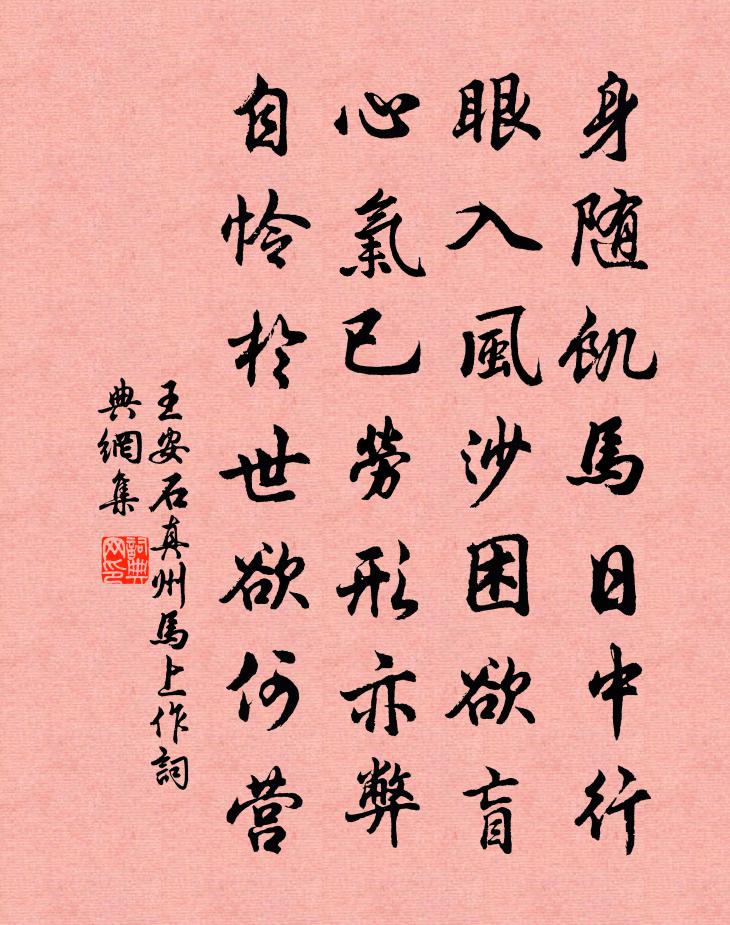 身随飢馬日中行
眼入風沙困欲盲
心氣已勞形亦弊
自怜於世欲何营
王安石真州馬上作詞
典網集
詞典網印